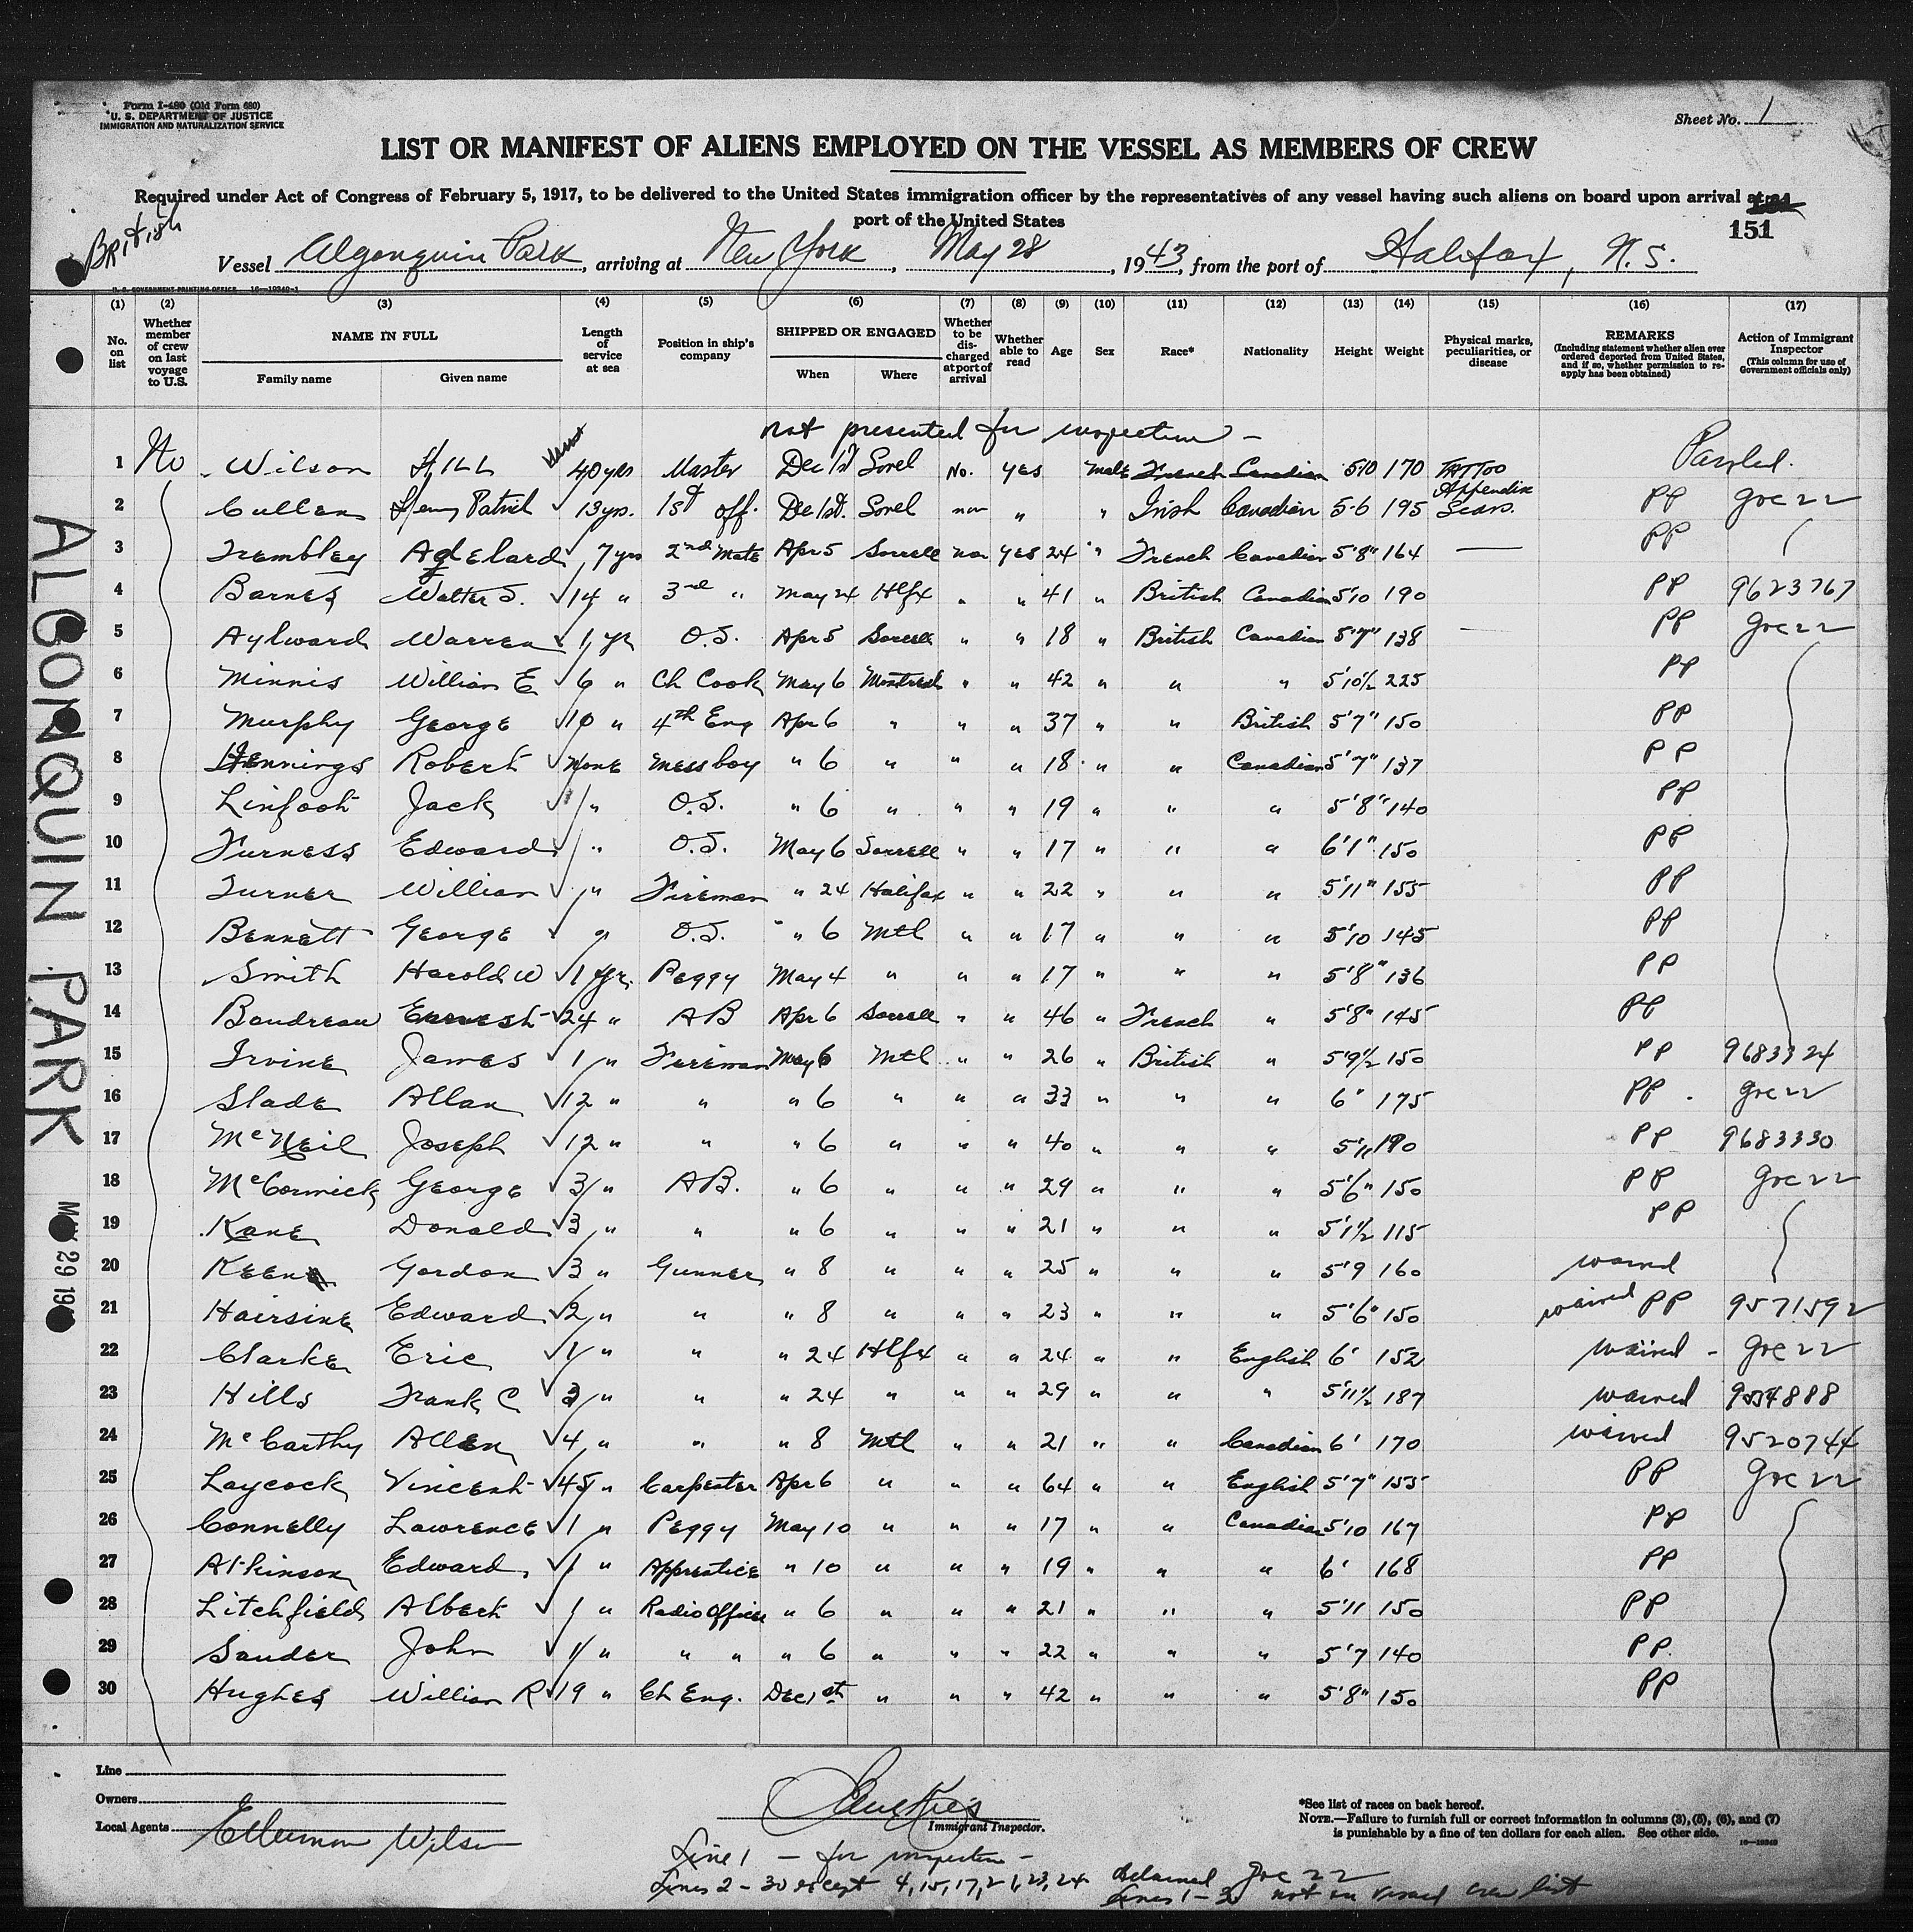 Form I-480 (Old Form 680)
U. S. DEPARTMENT OF JUSTICE
IMMIGRATION AND NATURALIZATION SERVICE
Sheet No. 1
LIST OR MANIFEST OF ALIENS EMPLOYED ON THE VESSEL AS MEMBERS OF CREW
Required under Act of Congress of February 5, 1917, to be delivered to the United States immigration officer by the representatives of any vessel having such aliens on board upon arrival at a
port of the United States
151
British
Vessel Algonquin Park, arriving at New York, May 28, 1943, from the port of Halifax, N.S.
U. S. GOVERNMENT PRINTING OFFICE 16—19340-1
(1) (2) (3) (4) (5) (6) (7) (8) (9) (10) (11) (12) (13) (14) (15) (16) (17)
No. on list
Whether member of crew on last voyage to U.S.
NAME IN FULL
Family name Given name
Length of service at sea
Position in ship's company
SHIPPED OR ENGAGED
When Where
Whether to be discharged at port of arrival
Whether able to read
Age Sex Race* Nationality Height Weight
Physical marks, peculiarities, or disease
REMARKS
(Including statement whether alien ever ordered deported from United States, and if so, whether permission to reapply has been obtained)
Action of Immigrant Inspector
(This column for use of Government officials only)
not presented for inspection -
1 No Wilson 40 yrs Master Dec 1st Sorel No. yes male French Canadian 5·10 170 TATToo
2 Cullen Henry Patrick 13 yrs. 1st off. Dec 1st. Sorel non " " Irish Canadian 5·6 195 Appendix Scars. PP
3 Trembley Adelard 7 yrs 2nd Mate Apr 5 Sorrell non yes 24 " French Canadian 5'8" 164 — PP
4 Barnes Walter S. 14 " 3rd " May 24 Hlfx " " 41 " British Canadian 5'10 190 PP 9623767
5 Aylward Warren 1 yr O.S. Apr 5 Sorrell " " 18 " British Canadian 5'7" 138 — PP
6 Minnis William E 6 " Ch Cook May 6 Montreal " " 42 " " " 5'10½ 225 PP
7 Murphy George 10 " 4th Eng Apr 6 " " " 37 " " British 5'7" 150 PP
8 Hennings Robert None Mess boy " 6 " " " 18 " " Canadian 5'7" 137 PP
9 Linfoot Jack " O.S. " 6 " " " 19 " " " 5'8" 140 PP
10 Furness Edward " O.S. May 6 Sorrell " " 17 " " " 6'1" 150 PP
11 Turner William " Fireman " 24 Halifax " " 22 " " " 5'11" 155 PP
12 Bennett George " O.S. " 6 Mtl " " 17 " " " 5'10 145 PP
13 Smith Harold W 1 yr. Peggy May 4 " " " 17 " " " 5'8" 136 PP
14 Boudreau Ernest 24 " AB Apr 6 Sorrell " " 46 " French " 5'8" 145 PP
15 Irvine James 1 " Fireman May 6 Mtl " " 26 " British " 5'9½ 150 PP 9683324
16 Slade Allan 12 " " " 6 " " " 33 " " " 6" 175 PP
17 McNeil Joseph 12 " " " 6 " " " 40 " " " 5'11 190 PP 9683330
18 McCormick George 3 " AB. " 6 " " " 29 " " " 5'6" 150 PP
19 Kane Donald 3 " " " 6 " " " 21 " " " 5'1½ 115 PP
20 Keen Gordon 3 " Gunner " 8 " " " 25 " " " 5'9 160 waived
21 Hairsine Edward 2 " " " 8 " " " 23 " " " 5'6" 150 waived PP 9571592
22 Clarke Eric 1 " " " 24 Hlfx " " 24 " " English 6' 152 waived -
23 Hills Frank C 3 " " " 24 " " " 29 " " " 5'11½ 187 waived
24 McCarthy Allen 4 " " " 8 Mtl " " 21 " " Canadian 6' 170 waived 9520744
25 Laycock Vincent 45 " Carpenter Apr 6 " " " 64 " " English 5'7" 155 PP
26 Connelly Lawrence 1 " Peggy May 10 " " " 17 " " Canadian 5'10 167 PP
27 Atkinson Edward 1 " Apprentice " 10 " " " 19 " " " 6' 168 PP
28 Litchfield Albert 1 " Radio Officer " 6 " " " 21 " " " 5'11 150 PP
29 Sander John 1 " " " " 6 " " " 22 " " " 5'7 140 PP
30 Hughes William R 19 " Ch Eng. Dec 1st " " " 42 " " " 5'8" 150 PP
ALGONQUIN PARK
29 19
Line
Owners
Local Agents Ellerman Wilson
Immigrant Inspector.
*See list of races on back hereof.
NOTE.—Failure to furnish full or correct information in columns (3), (5), (6), and (7)
is punishable by a fine of ten dollars for each alien. See other side.
Line 1 - for inspection -
Lines 2-30 except 4, 15, 17, 21, 23, 24
not on vessel crew list